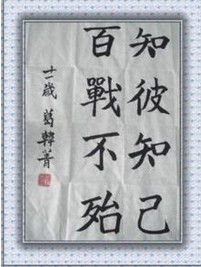 知彼知己
百戰不殆
十一歲 葛韓菁